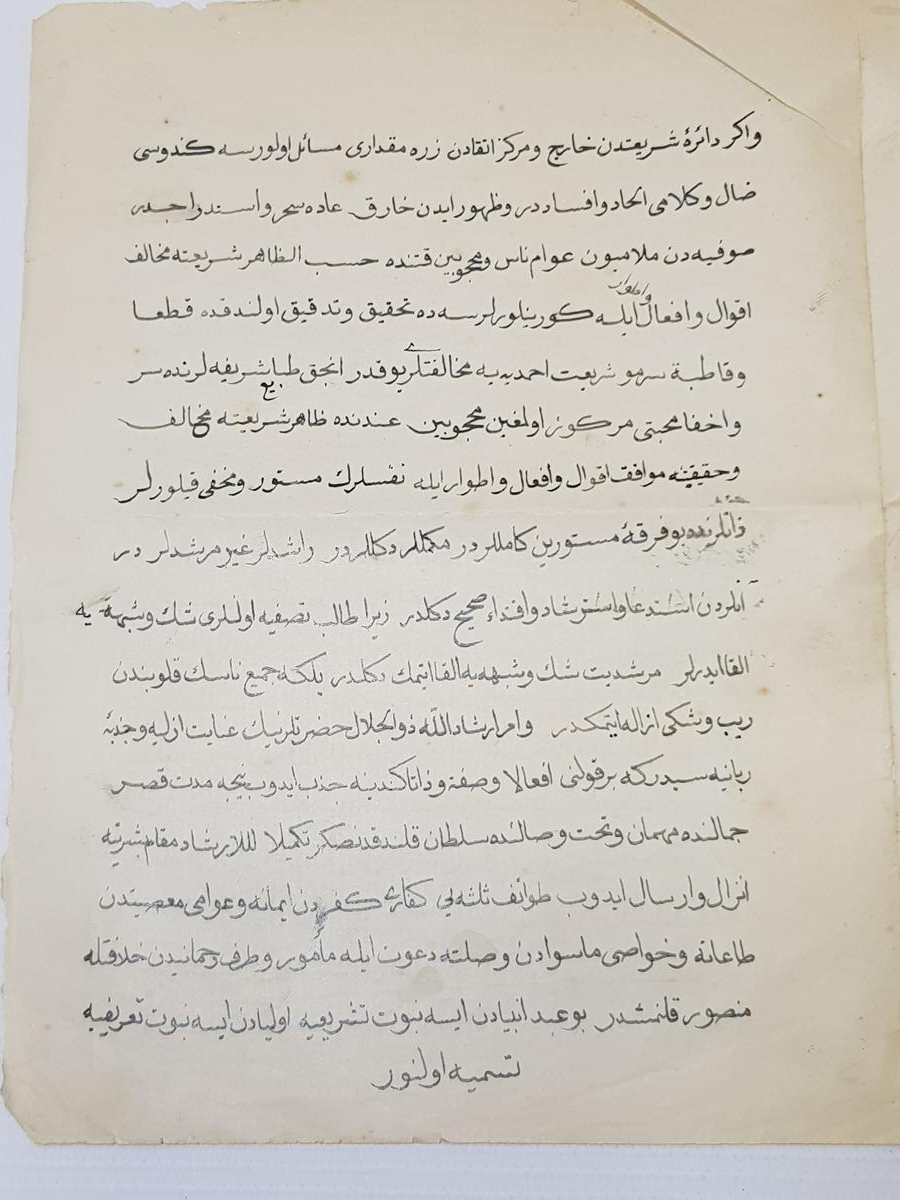 واكر دائرۀ شريعتدن خارج ومركز اتقادن زره مقدارى مسائل اولورسه كندوسى
ضال وكلامى الحاد وافساد در وظهور ايدن خارق عاده سحر واستدراجدر
صوفيه دن ملاميون عوام ناس ومحجوبين قتنده حسب الظاهر شريعته مخالف
اقوال وافعال واطوار ايله كورينلورلرسه ده تحقيق وتدقيق اولندقده قطعا
وقاطبة سرمو شريعت احمديه يه مخالفتلرى يوقدر انجق طبايع شريفه لرنده سر
واخفا محبتى مركوز اولمغين محجوبين عندنده ظاهر شريعته مخالف
وحقيقته موافق اقوال وافعال واطوار ايله نفسلرك مستور ومخفى قيلورلر
ذاتلرنده بو فرقۀ مستورين كامللردر مكمللر دكللردر راشدلر غير مرشدلر در
انلردن استدعا واسترشاد واقتداء صحيح دكلدر زيرا طالب تصفيه اولنلرى شك وشبهه يه
القا ايدرلر مرشديت شك وشبهه يه القا ايتمك دكلدر بلكه جميع ناسك قلوبندن
ريب وشكى ازاله ايتمكدر وامر ارشاد الله ذو الجلال حضرتلرينك عنايت ازليه وجذبۀ
ربانيه سيدركه بر قولنى افعالا وصفة وذاتا كندينه جذب ايدوب نيجه مدت قصر
جمالنده مهمان وتحت وصالنده سلطان قلندقدنصكره تكميلا للارشاد مقام بشريته
انزال وارسال ايدوب طوائف ثلثه يى كفارى كفردن ايمانه وعوامى معصيتدن
طاعاته وخواصى ماسوادن وصلته دعوت ايله مأمور وطرف رحمانيدن خلافتله
منصور قلنمشدر بو عبد انبيادن ايسه نبوت تشريعيه اوليادن ايسه نبوت تعريفيه
تسميه اولنور